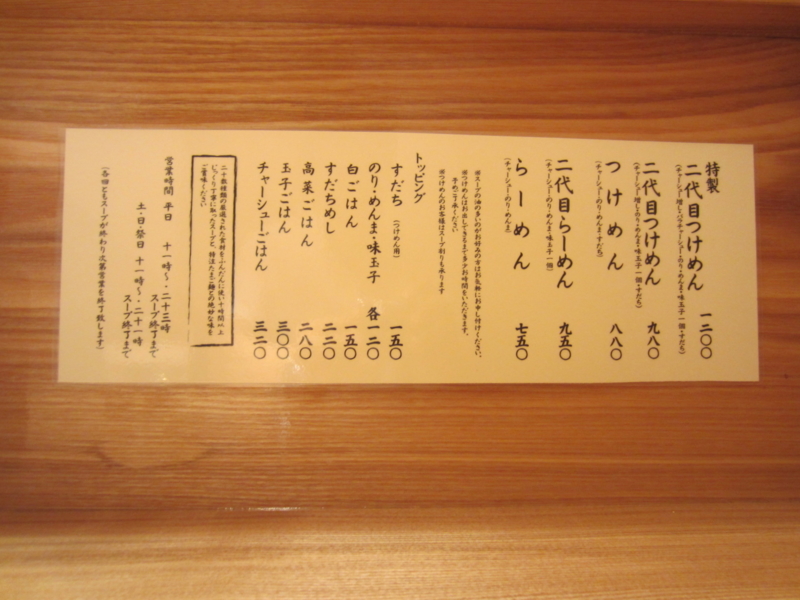 特製
二代目つけめん 一二〇〇
(チャーシュー増し・バラチャーシュー・のり・めんま・味玉子一個・すだち)
二代目つけめん 九八〇
(チャーシュー増し・のり・めんま・味玉子一個・すだち)
つけめん 八八〇
(チャーシュー・のり・めんま・すだち)
二代目らーめん 九五〇
(チャーシュー・のり・めんま・味玉子一個)
らーめん 七五〇
(チャーシュー・のり・めんま)
※スープの油の多いのがお好みの方はお気軽にお申し付けください。
※つけめんはお出しできるまで多少お時間をいただきます。
予めご了承ください
※つけめんのお客様はスープ割りも承ります
トッピング
すだち (つけめん用) 一五〇
のり・めんま・味玉子 各一二〇
白ごはん 一五〇
すだちめし 二二〇
高菜ごはん 二八〇
玉子ごはん 三〇〇
チャーシューごはん 三二〇
二十数種類の厳選された食材をふんだんに使い十時間以上
じっくり丁寧に取ったスープと、特注たまご麺との絶妙な味を
ご賞味ください
営業時間 平日 十一時〜・二十三時
スープ終了まで
土・日・祭日 十一時〜・二十一時
スープ終了まで
(各回ともスープが終わり次第営業を終了致します)